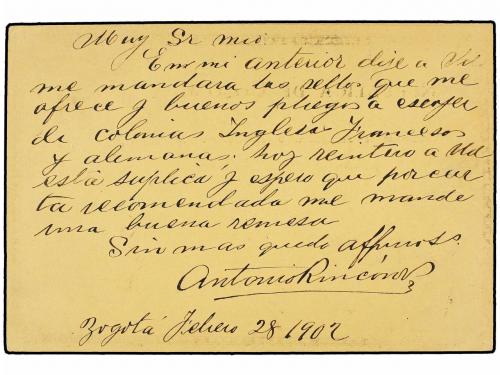 Muy Sr mio
En mi anterior dise a
me mandara los sellos que me
ofrece y buenos pliegos a escojer
de colonias Inglesa Francesas
y alemanas; hoy reintero a Ud
esta suplica y espero que por car
ta recomendada me mande
una buena remesa
Sin mas quedo affmo s.
Antonio Rincón
Bogotá Febero 28 1902